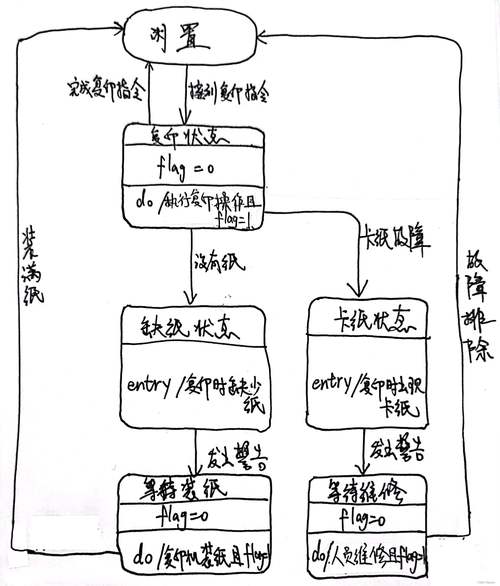 闲置
完成复印指令
接到复印指令
复印状态
flag=0
do/执行复印操作且
flag=1
没有纸
卡纸故障
装满纸
故障排除
缺纸状态
entry/复印时缺少
纸
卡纸状态
entry/复印时出现
卡纸
发出警告
发出警告
等待装纸
flag=0
do/复印机装纸且flag=1
等待维修
flag=0
do/人员维修且flag=1